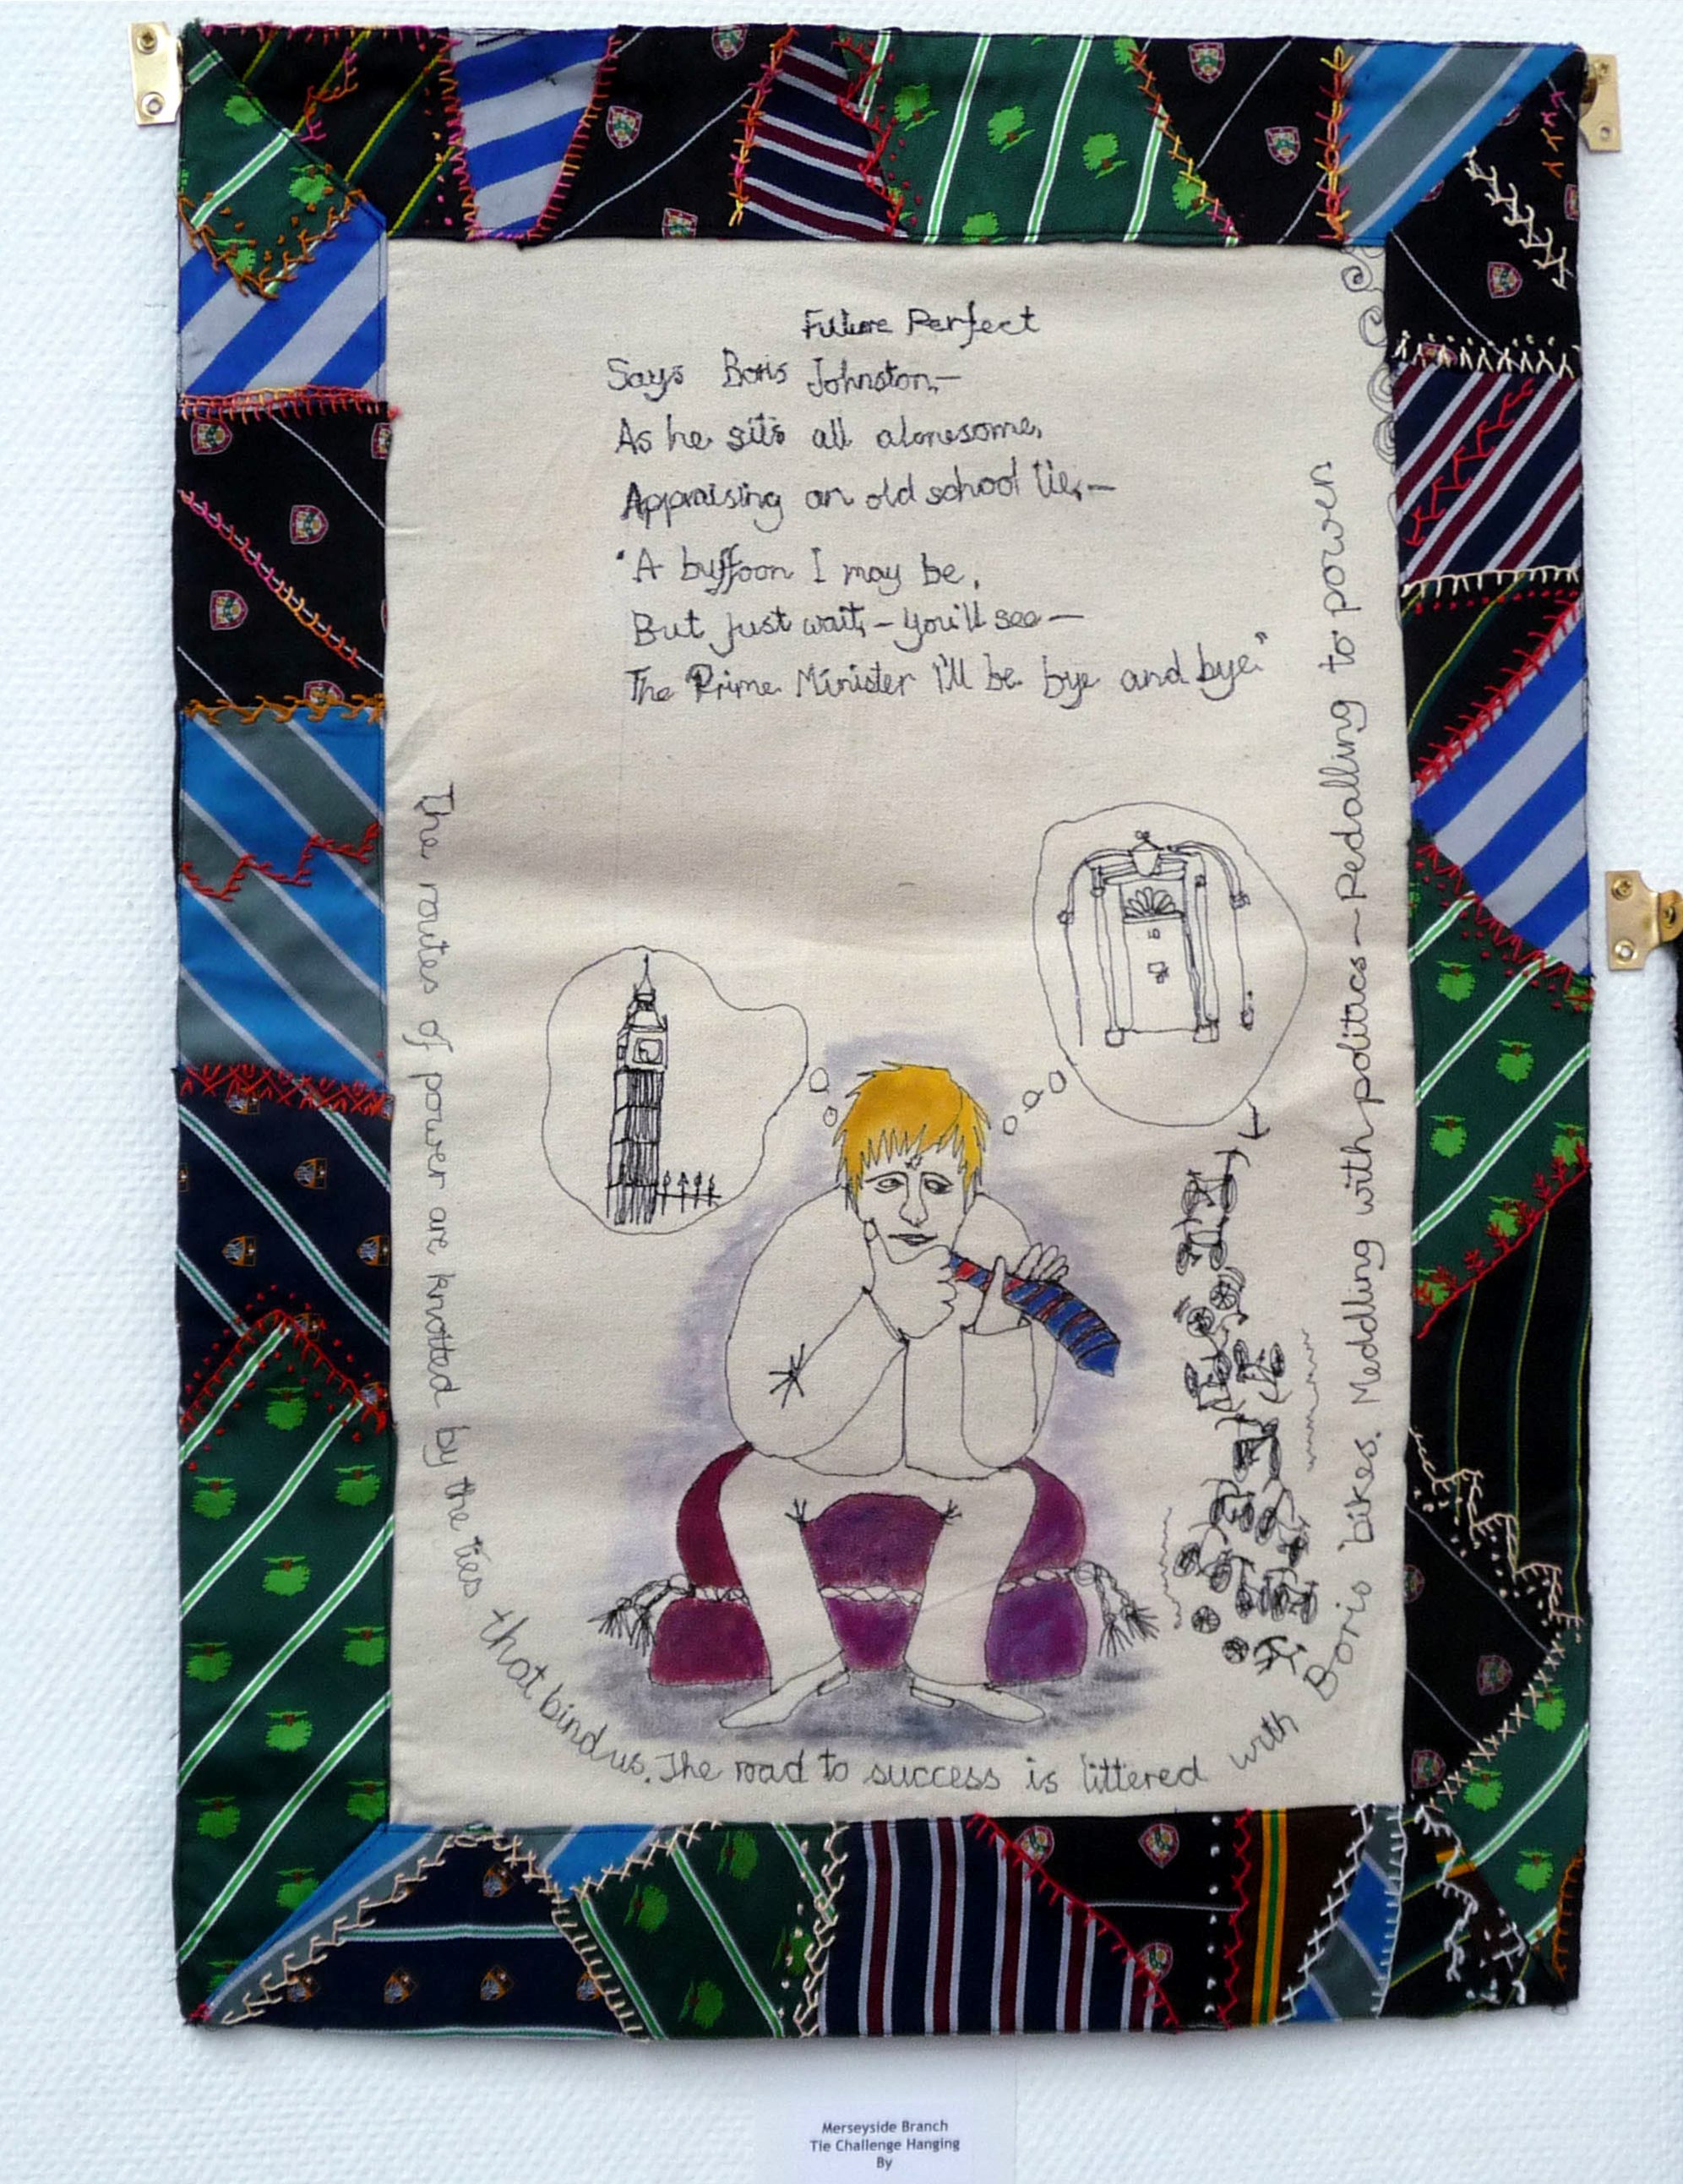 Future Perfect
Says Boris Johnston,—
As he sits all alonesome,
Appraising an old school tie,—
"A buffoon I may be,
But just wait,—you'll see—
The Prime Minister I'll be bye and bye."
The routes of power are knotted by the ties that bind us. The road to success is littered with Boris bikes. Meddling with politics—Pedalling to power
Merseyside Branch
Tie Challenge Hanging
By